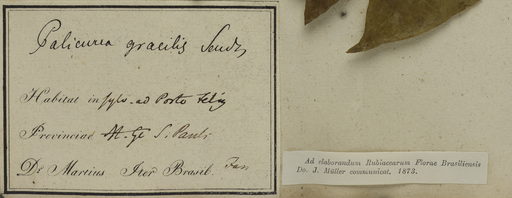 Palicurea gracilis
Habitat in sylv. ad Porto Feliz
Provinciae S. Pauli
Dr Martius Iter Brasil. Jan
Ad elaborandum Rubiacearum Florae Brasiliensis
Do. J. Müller communicat. 1873.